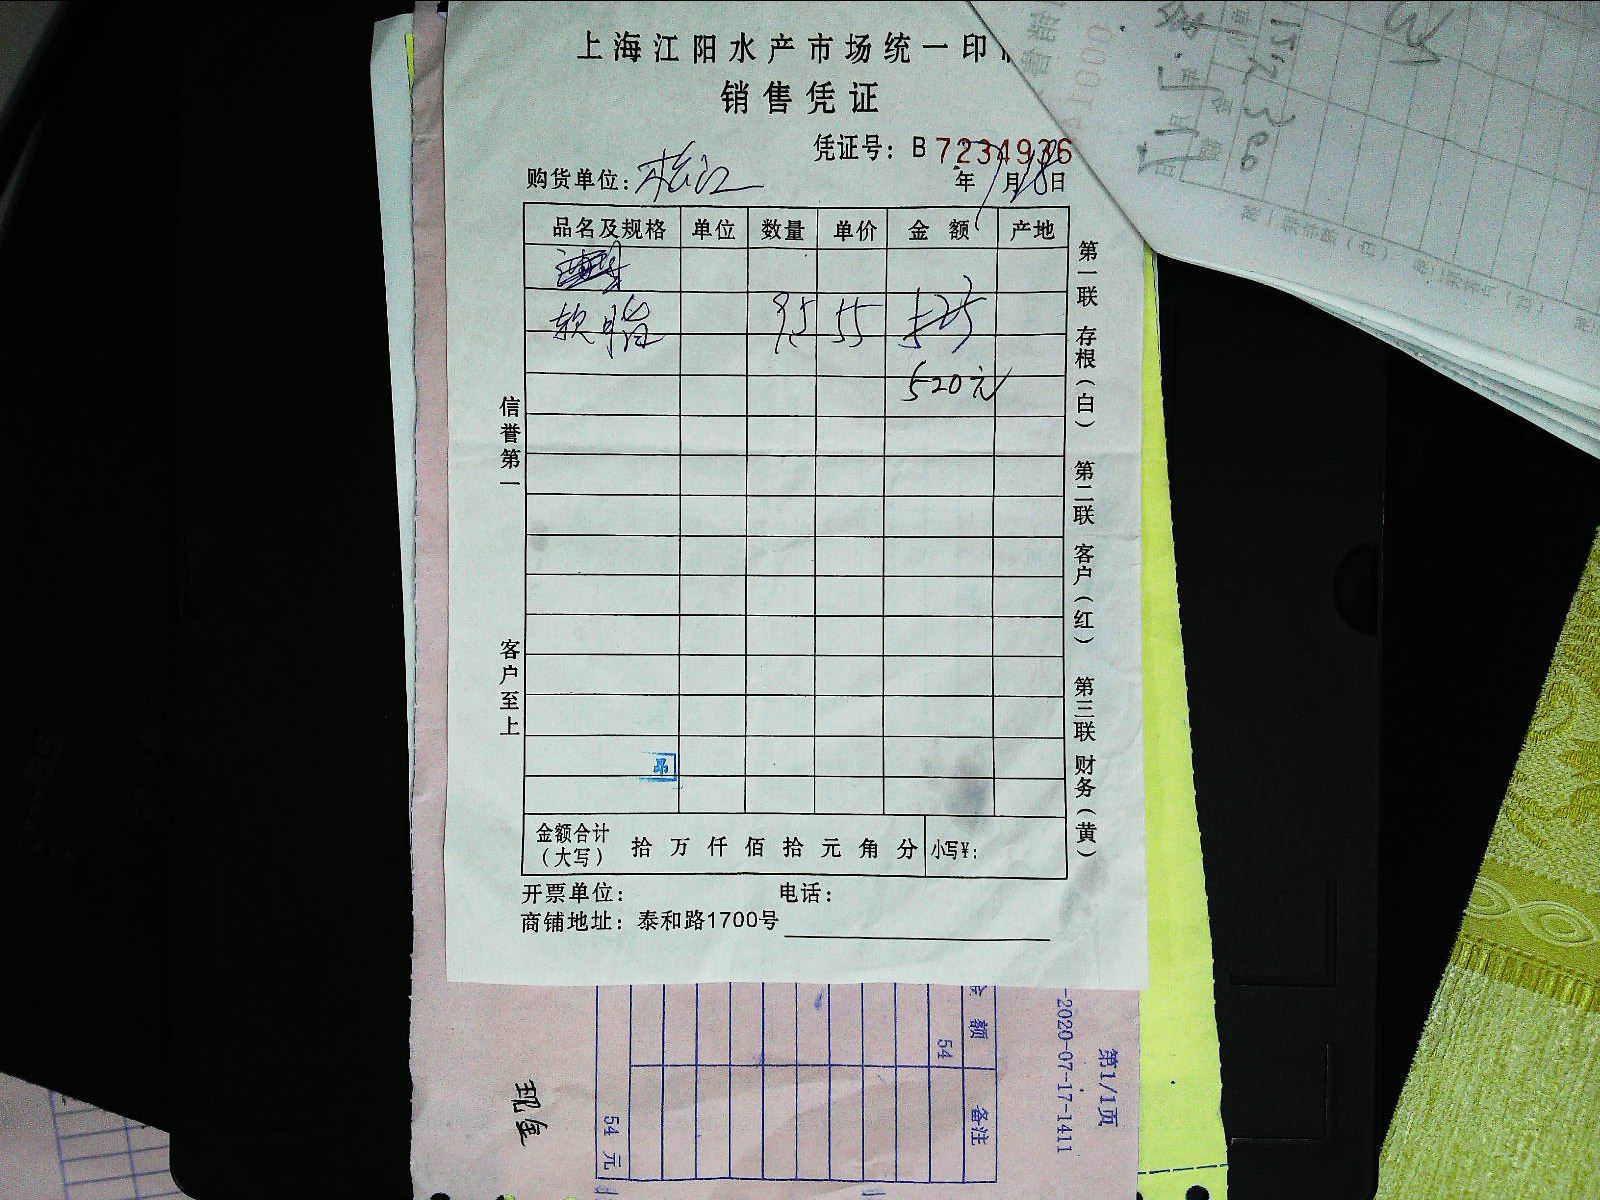 上海江阳水产市场统一印
销售凭证
凭证号：B 7234936
购货单位：松江 年 7月18日
品名及规格 单位 数量 单价 金额 产地
软 95 55
520元
金额合计（大写） 拾 万 仟 佰 拾 元 角 分 小写¥：
开票单位： 电话：
商铺地址：泰和路1700号
信誉第一
客户至上
第一联 存根（白） 第二联 客户（红） 第三联 财务（黄）
昂
额
54
备注
54 元
-2020-07-17-1411
第1/1页
现金